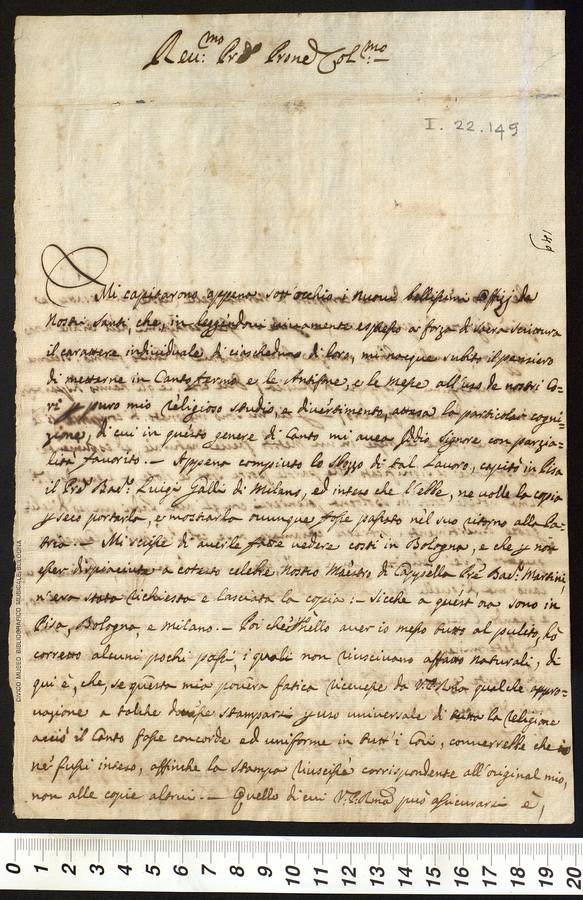 Rev:mo Pre Prone Col:mo
I. 22.149
149
Mi capitarono appena sott'occhio i nuovi bellissimi Offizj de
Nostri Santi, che, in leggendovi vivamente espresso a forza di Sacra Scrittura
il carattere individuale di ciascheduno di loro, mi nacque subito il pensiero
di metterne in Canto fermo e le Antifone, e le Messe all'uso de nostri Co=
ri p puro mio Religioso studio, e divertimento, attesa la particolar cogni=
zione, di cui in questo genere di Canto mi avea Iddio Signore con parzia=
lità favorito. — Appena compiuto lo sbozzo di tal lavoro, capitò in Pisa
il Pre Bacc. Luigi Galli di Milano, ed inteso che l'ebbe, ne volle la copia
p seco portarla, e mostrarla ovunque fosse passato nel suo ritorno alla Pa=
tria — Mi scrisse di averle fatte vedere costì in Bologna, e che p non
esser dispiaciute a cotesto celebre nostro Maestro di Cappella Pre Bac. Martini,
n'era stata richiesta e lasciata la copia: — Sicche a quest'ora sono in
Pisa, Bologna, e Milano. — Poi che quello aver io messo tutto al pulito, ho
corretto alcuni pochi passi, i quali non riuscivano affatto naturali, di
qui è, che, se questa mia povera fatica ricevesse da V.P.Rma qualche appro=
vazione a talche dovesse stamparsi p uso universale di tutta la Religione
acciò il Canto fosse concorde ed uniforme in tutt'i Cori, converrebbe che io
ne fussi inteso, affinche la stampa riuscisse corrispondente all'original mio,
non alle copie altrui. — Quello di cui V.P.Rma può assicurarsi è,
CIVICO MUSEO BIBLIOGRAFICO MUSICALE BOLOGNA
0 1 2 3 4 5 6 7 8 9 10 11 12 13 14 15 16 17 18 19 20